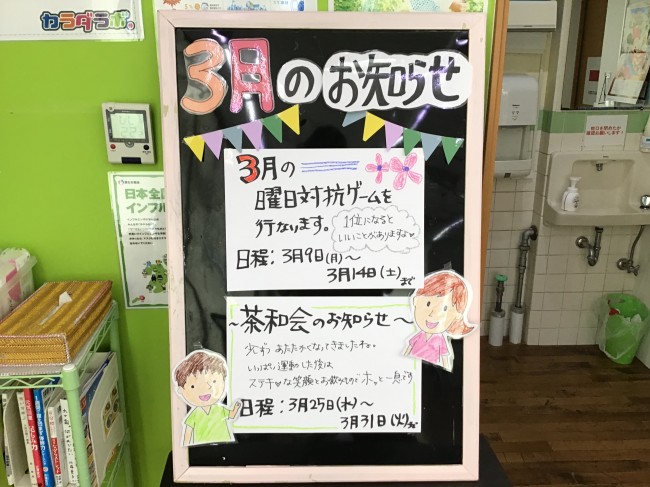 カラダラボ
3月のお知らせ
3月の
曜日対抗ゲームを
行ないます。
1位になると
いいことがありますよ
日程：3月9日(月)～
3月14日(土)まで
～茶和会のお知らせ～
少しずつあたたかくなってきましたね。
いっぱい運動した後は
ステキな笑顔とお飲みもので ホッと一息です
日程：3月25日(水)～
3月31日(火)まで
日本全国
インフル